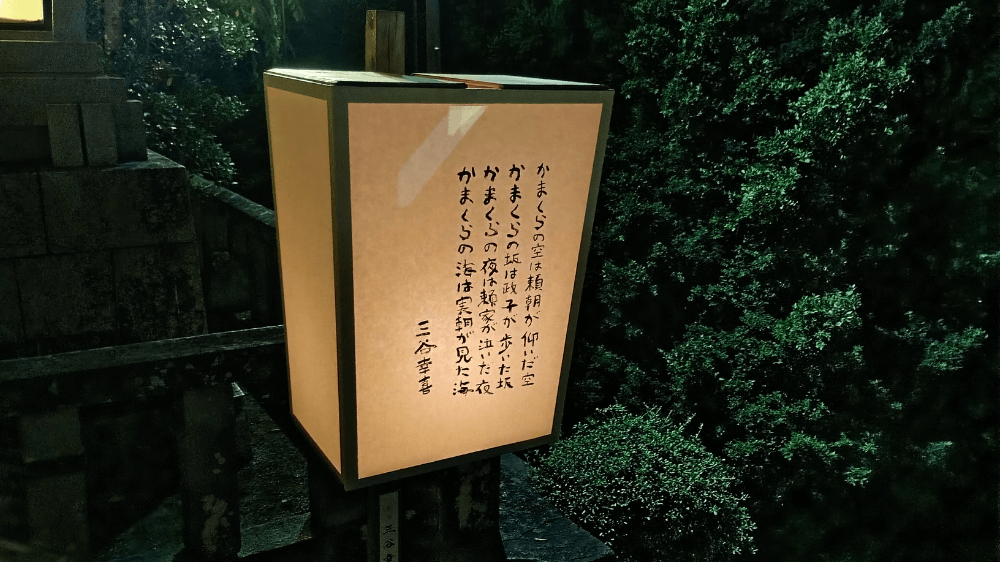 かまくらの空は頼朝が仰いだ空
かまくらの坂は政子が歩いた坂
かまくらの夜は頼家が泣いた夜
かまくらの海は実朝が見た海
三谷幸喜
三谷幸